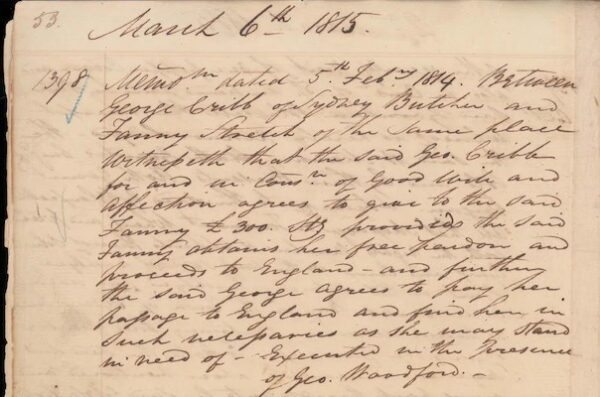 53.
March 6th 1815.
1398 Memo.m dated 5th Feb.ry 1814. Between
George Cribb of Sydney Butcher and
Fanny Stretch of the Same place
Witnesseth that the said Geo. Cribb
for and in Consn. of Good Will and
affection agrees to give to the said
Fanny £300. Stg provided the said
Fanny obtains her free pardon and
proceeds to England - and further
the said George agrees to pay her
passage to England and find her in
Such necessaries as she may Stand
in need of - Executed in the Presence
of Geo. Woodford. -